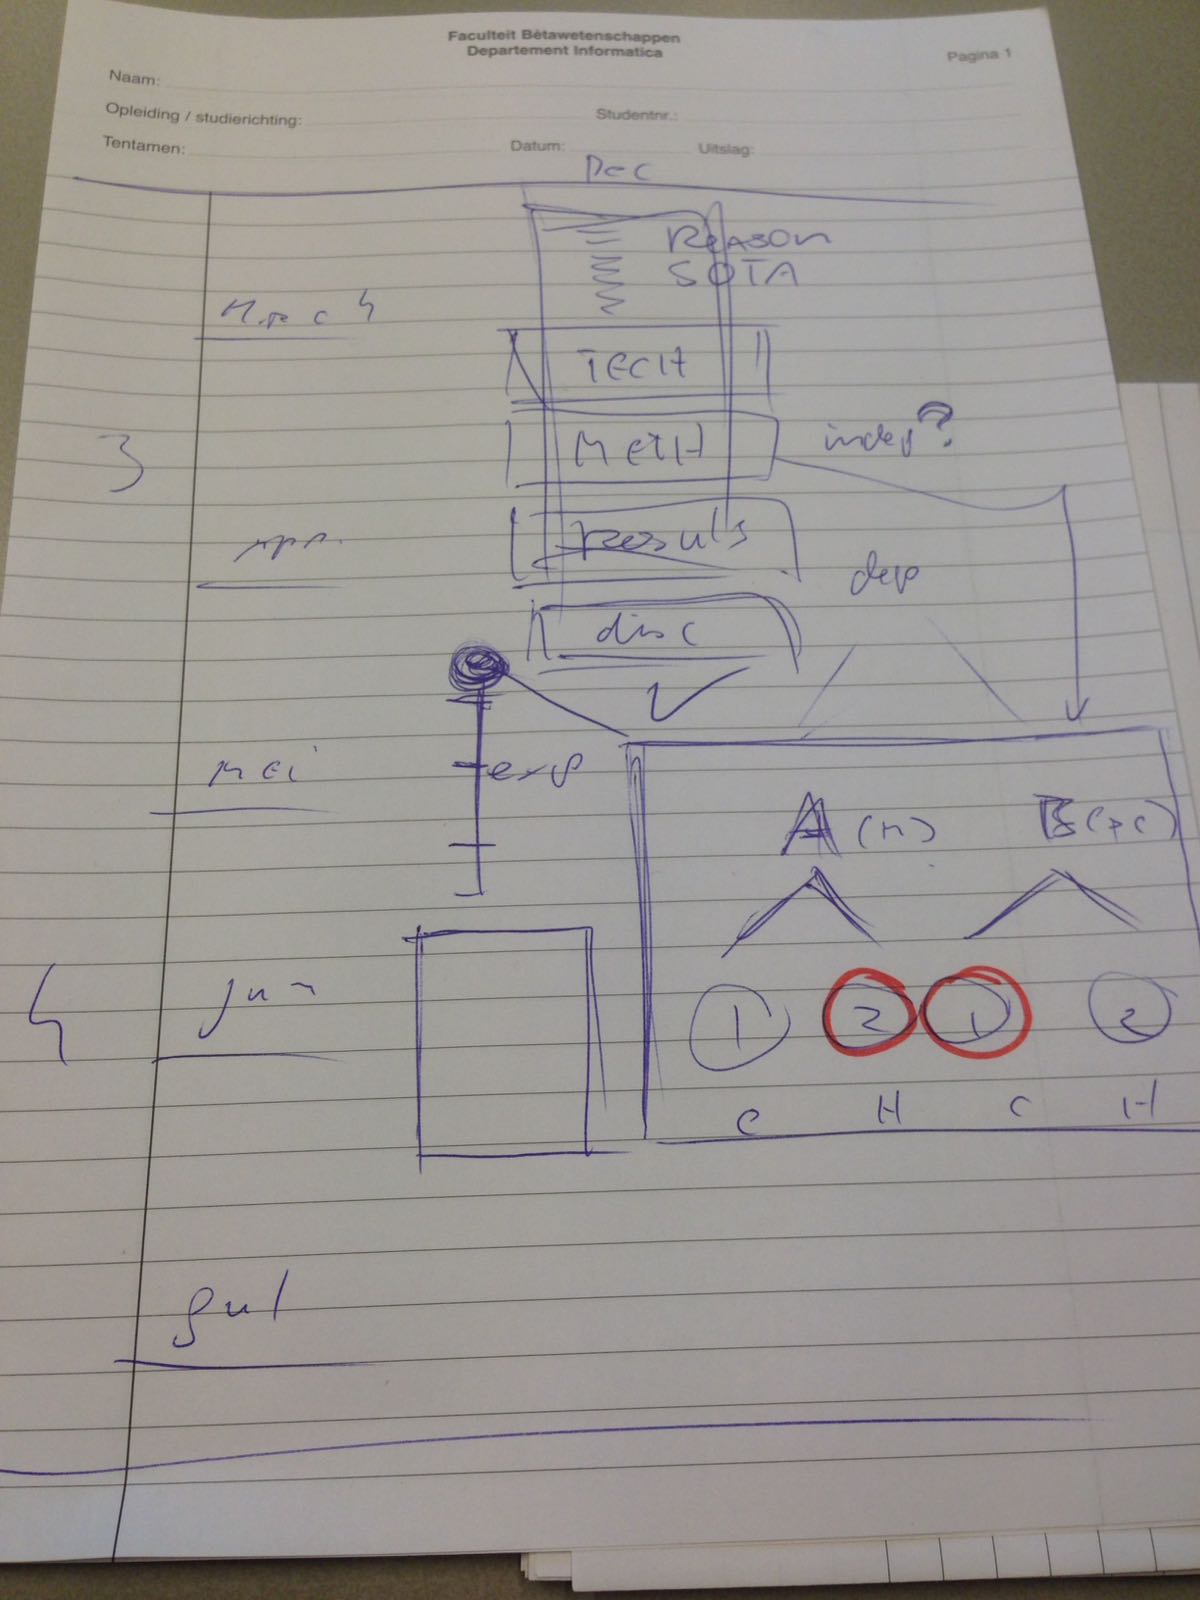 Faculteit Bètawetenschappen
Departement Informatica
Pagina 1
Naam:
Opleiding / studierichting:
Studentnr.:
Tentamen:
Datum:
Uitslag:
Dec
Reason
SOTA
TECH
METH
indep?
3
Results
dep
disc
mei
exp
A (m)
B (pc)
4
jun
1 2 1 2
C H C H
jul